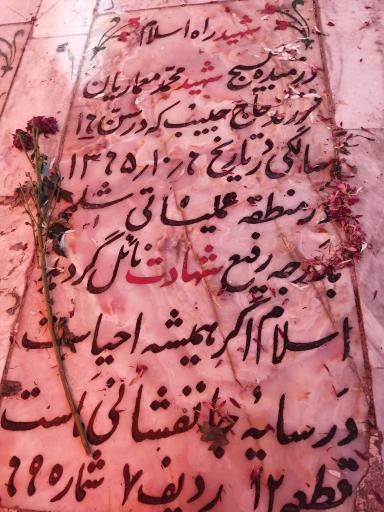 شهید راه اسلام
رزمنده بسیج شهید محمد معماریان
فرزند حاج حبیب که در سن ۱۶
سالگی در تاریخ ۱۳۶۵٫۱۰٫۴
در منطقه عملیاتی شلمچه
بدرجه رفیع شهادت نائل گردید
اسلام اگر همیشه احیاست
در سایهٔ جانفشانی است
قطعه ۱۲ ردیف ۷ شماره ۶۹